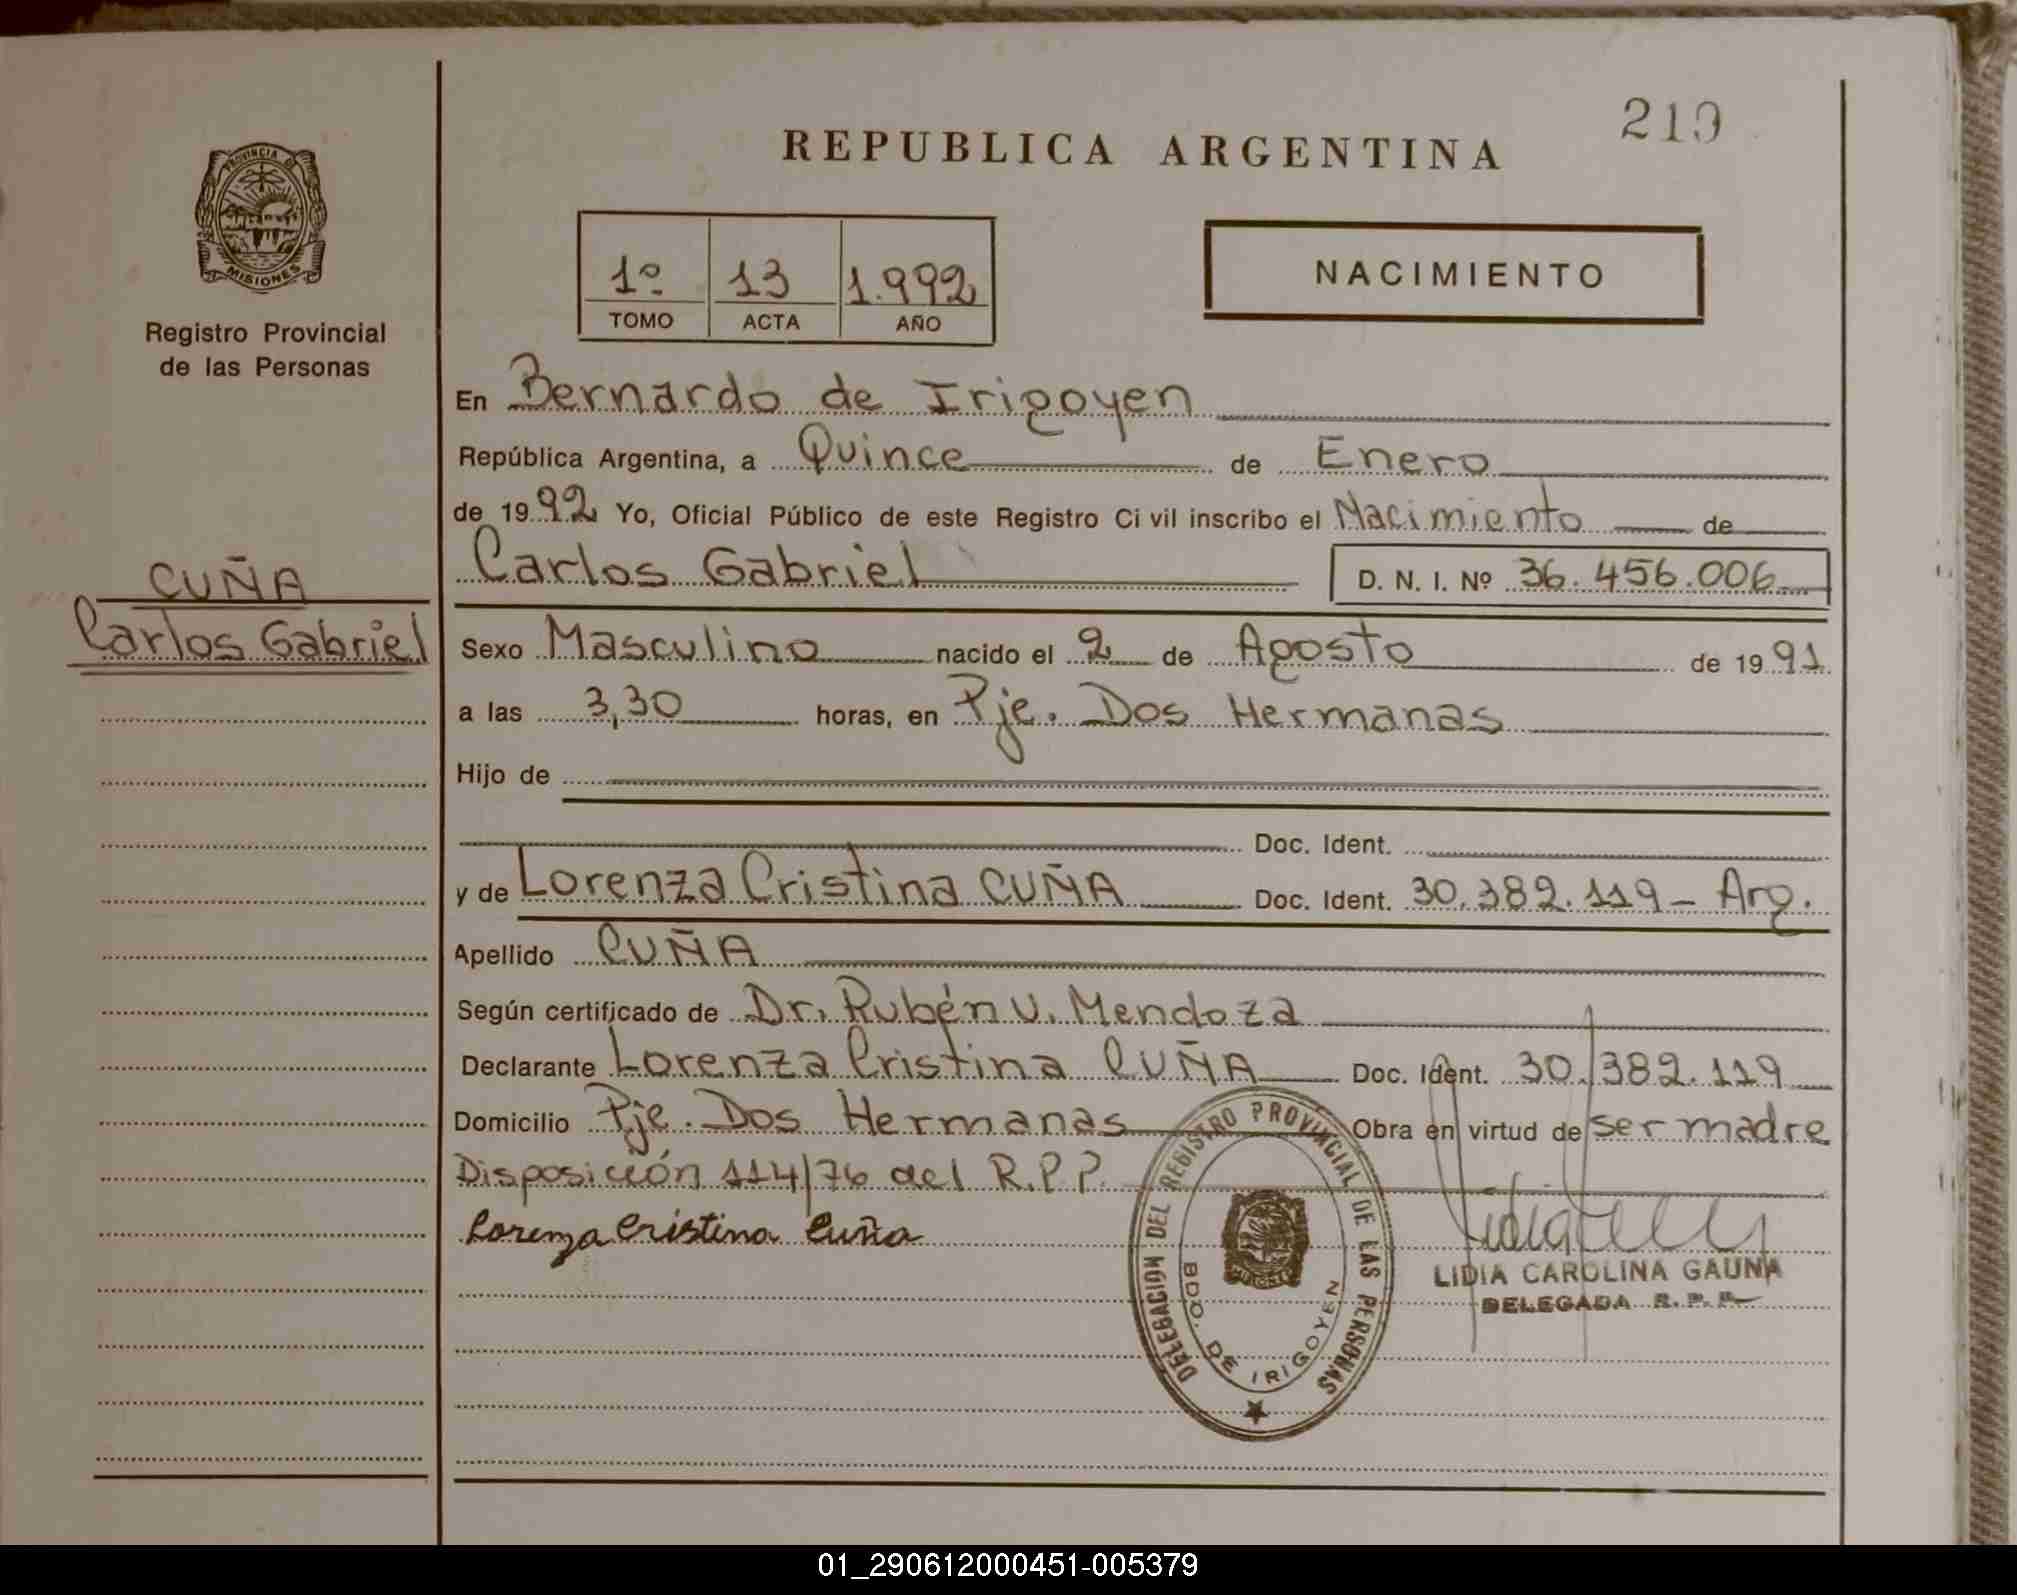 210
REPUBLICA ARGENTINA
PROVINCIA D
MISIONES
Registro Provincial
de las Personas
1º 13 1.992
TOMO ACTA AÑO
NACIMIENTO
En Bernardo de Irigoyen
República Argentina, a Quince de Enero
de 1992 Yo, Oficial Público de este Registro Ci vil inscribo el Nacimiento de
Carlos Gabriel D. N. I. Nº 36.456.006
CUÑA
Carlos Gabriel
Sexo Masculino nacido el 2 de Agosto de 1991
a las 3,30 horas, en Pje. Dos Hermanas
Hijo de
Doc. Ident.
y de Lorenza Cristina CUÑA Doc. Ident. 30.382.119 - Arg.
Apellido CUÑA
Según certificado de Dr. Rubén V. Mendoza
Declarante Lorenza Cristina CUÑA Doc. Ident. 30.382.119
Domicilio Pje. Dos Hermanas Obra en virtud de ser madre
Disposición 114/76 del R.P.P.
Lorenza Cristina Cuña
DELEGACION DEL REGISTRO PROVINCIAL DE LAS PERSONAS
BDO. DE IRIGOYEN
LIDIA CAROLINA GAUNA
DELEGADA R. P. P.
01_290612000451-005379